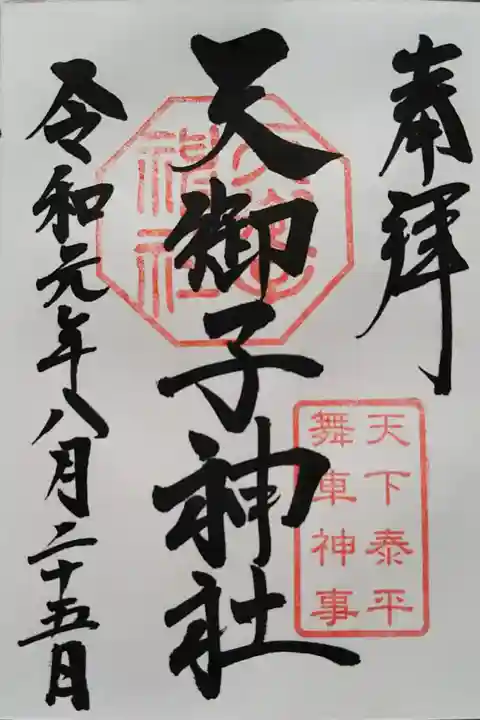 奉拝
天下泰平
舞車神事
天御子神社
令和元年八月二十五日